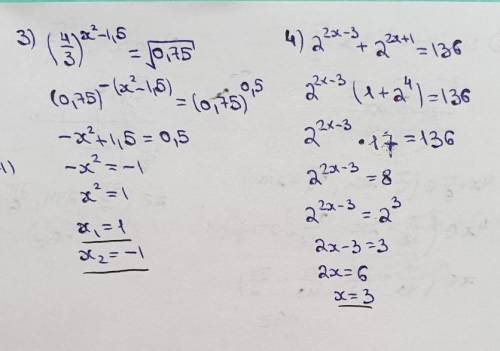 3) (4/3)^(x²-1,5) = √0,75
(0,75)^(-(x²-1,5)) = (0,75)^0,5
-x²+1,5 = 0,5
-x² = -1
x² = 1
x₁ = 1
x₂ = -1
4) 2^(2x-3) + 2^(2x+1) = 136
2^(2x-3) (1+2⁴) = 136
2^(2x-3) · 17 = 136
2^(2x-3) = 8
2^(2x-3) = 2³
2x-3 = 3
2x = 6
x = 3